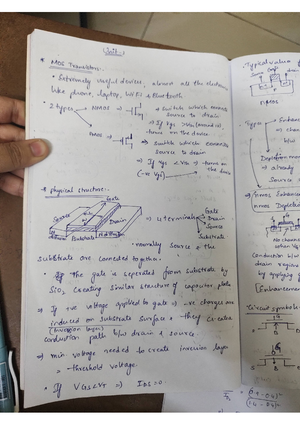 Unit-1
* MOS Transistors:-
• Extremely useful devices, almost all the electronics
like phone, laptop, WiFi & Bluetooth
• 2 types → NMOS → ⇒ Switch which connects
source to drain
⇒ If Vgs
turns on the device
PMOS → ⇒ Switch which connects
source to drain
⇒ If Vgs < Vth | turns on
(-ve Vgs) the device
* Physical structure:-
Gate
Source
Drain
Substrate
⇒ 4 terminals
Gate
Drain
Source
Substrate
• normally source & the
substrate are connected together.
• If the gate is seperated from substrate by
SiO2 creating similar structure of capacitor plate
⇒ If +ve voltage applied to gate → -ve charges are
induced on substrate surface & they create
(inversion layer)
conduction path b/w drain & source.
⇒ min voltage needed to create inversion layer
= threshold voltage.
• If VGS < VT ⇒ IDS = 0.
Typical value
Source
NMOS
Types
Enhancement
channel
b/w
Depletion mode
already
Source
NMOS Enhancement
NMOS Depletion
No channel
when
Conduction b/w
drain region
by applying
[Enhancement
Circuit symbols